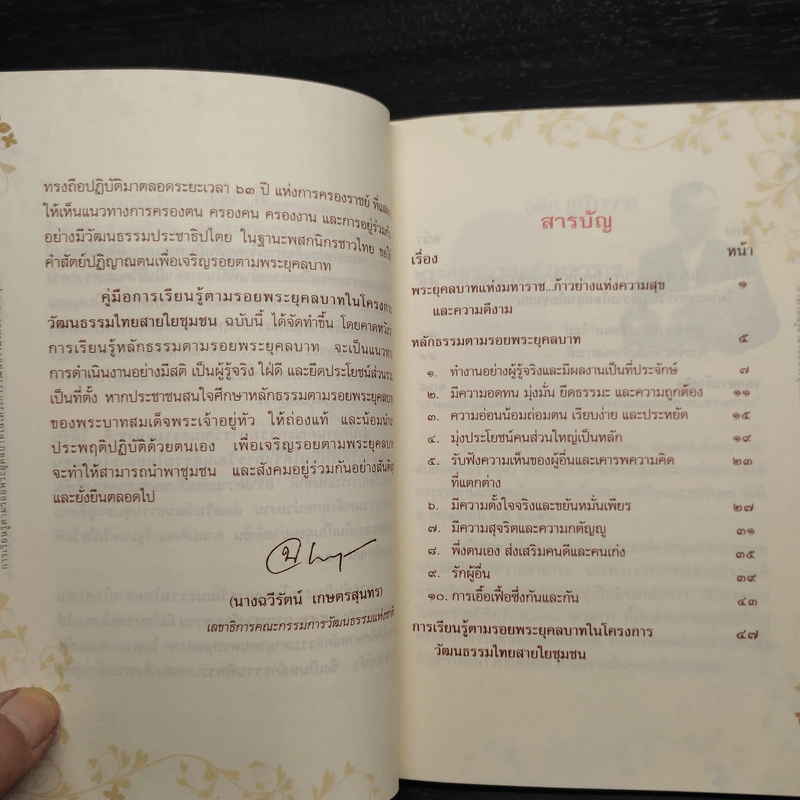 ทรงถือปฏิบัติมาตลอดระยะเวลา ๖๓ ปี แห่งการครองราชย์ ที่แสดง
ให้เห็นแนวทางการครองตน ครองคน ครองงาน และการอยู่ร่วมกัน
อย่างมีวัฒนธรรมประชาธิปไตย ในฐานะพสกนิกรชาวไทย ขอให้
คำสัตย์ปฏิญาณตนเพื่อเจริญรอยตามพระยุคลบาท
คู่มือการเรียนรู้ตามรอยพระยุคลบาทในโครงการ
วัฒนธรรมไทยสายใยชุมชน ฉบับนี้ ได้จัดทำขึ้น โดยคาดหวัง
การเรียนรู้หลักธรรมตามรอยพระยุคลบาท จะเป็นแนวทาง
การดำเนินงานอย่างมีสติ เป็นผู้รู้จริง ใฝ่ดี และยึดประโยชน์ส่วนรวม
เป็นที่ตั้ง หากประชาชนสนใจศึกษาหลักธรรมตามรอยพระยุคลบาท
ของพระบาทสมเด็จพระเจ้าอยู่หัว ให้ถ่องแท้ และน้อมนำ
ประพฤติปฏิบัติด้วยตนเอง เพื่อเจริญรอยตามพระยุคลบาท
จะทำให้สามารถนำพาชุมชน และสังคมอยู่ร่วมกันอย่างสันติสุข
และยั่งยืนตลอดไป
(นางฉวีรัตน์ เกษตรสุนทร)
เลขาธิการคณะกรรมการวัฒนธรรมแห่งชาติ
สารบัญ
เรื่อง หน้า
พระยุคลบาทแห่งมหาราช...ก้าวย่างแห่งความสุข ๑
และความดีงาม
หลักธรรมตามรอยพระยุคลบาท ๕
๑. ทำงานอย่างผู้รู้จริงและมีผลงานเป็นที่ประจักษ์ ๗
๒. มีความอดทน มุ่งมั่น ยึดธรรมะ และความถูกต้อง ๑๑
๓. ความอ่อนน้อมถ่อมตน เรียบง่าย และประหยัด ๑๕
๔. มุ่งประโยชน์คนส่วนใหญ่เป็นหลัก ๑๙
๕. รับฟังความเห็นของผู้อื่นและเคารพความคิด ๒๓
ที่แตกต่าง
๖. มีความตั้งใจจริงและขยันหมั่นเพียร ๒๗
๗. มีความสุจริตและความกตัญญู ๓๑
๘. พึ่งตนเอง ส่งเสริมคนดีและคนเก่ง ๓๕
๙. รักผู้อื่น ๓๙
๑๐. การเอื้อเฟื้อซึ่งกันและกัน ๔๓
การเรียนรู้ตามรอยพระยุคลบาทในโครงการ ๔๗
วัฒนธรรมไทยสายใยชุมชน